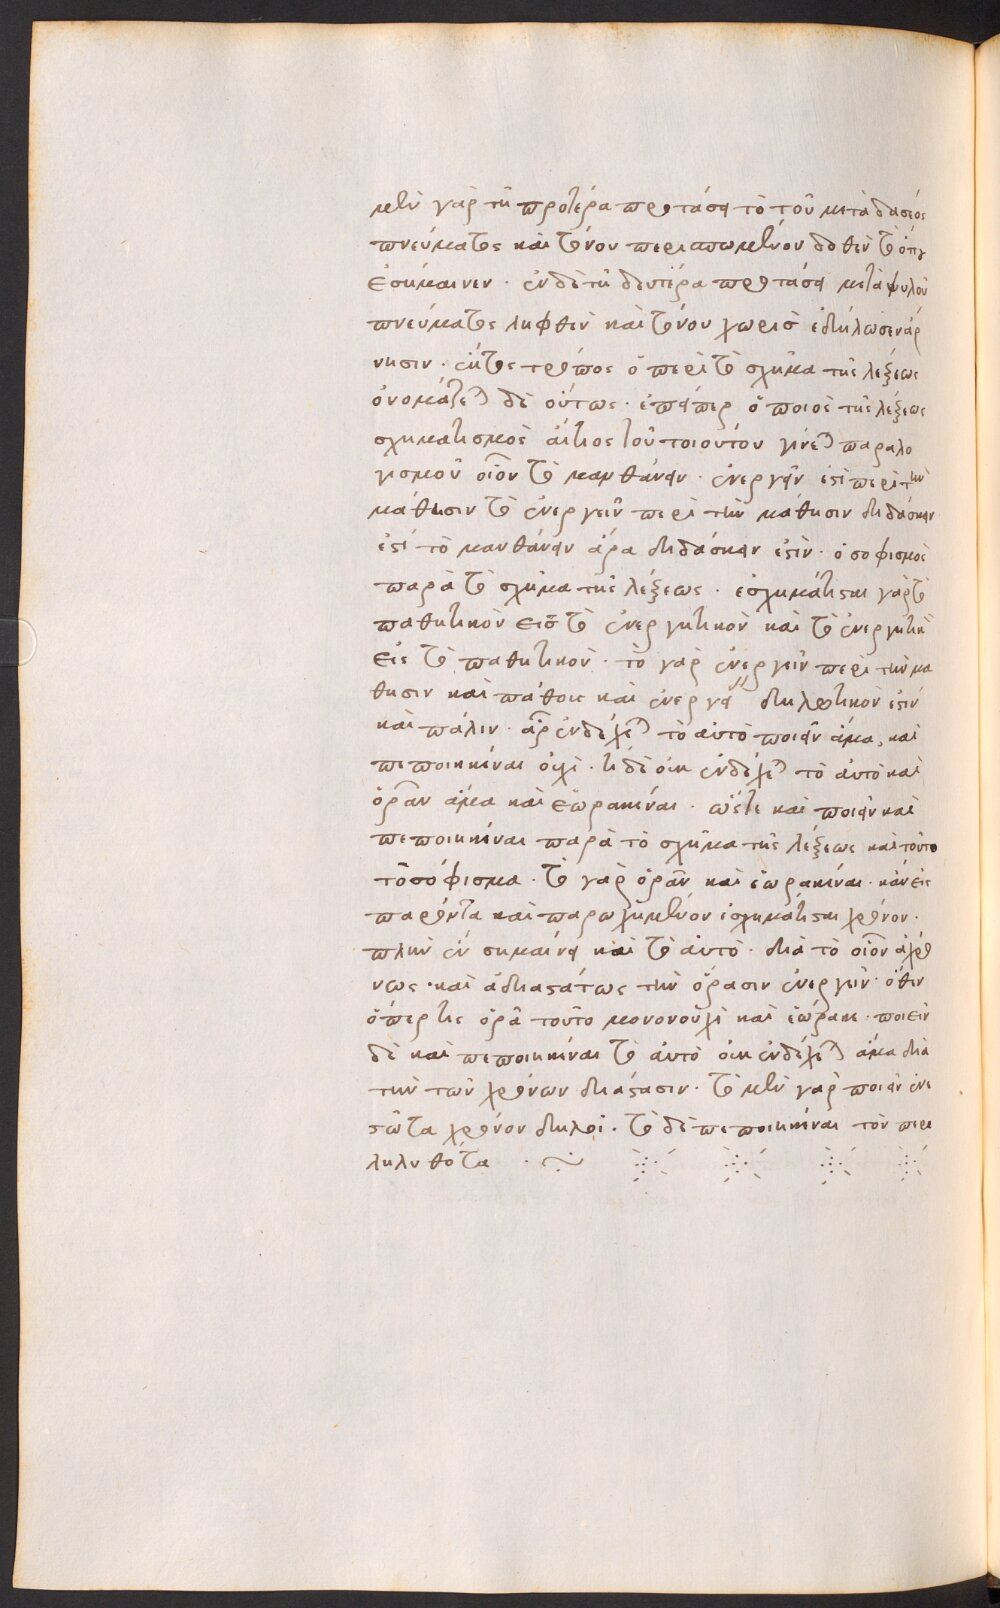 μὲν γὰρ τῇ προτέρα προτάσει τὸ τοῦ μετὰ δασέος
πνεύματος καὶ τόνου περισπωμένου δοθὲν τὸ ὅπου
ἐσήμαινεν · ἐν δὲ τῇ δευτέρα προτάσει μετὰ ψιλοῦ
πνεύματος ληφθὲν καὶ τόνου χωρὶσ ἐδήλωσεν ἄρ
νησιν · ἕκτος τρόπος ὁ περὶ τὸ σχῆμα τῆς λέξεως
ὀνομάζεται δὲ οὕτως · ἐπείπερ ὁ ποιὸς τῆς λέξεως
σχηματισμὸς αἴτιος τοῦ τοιούτου γίνεται παραλο
γισμοῦ οἷον τὸ μανθάνειν · ἐνεργεῖν ἐστὶ περὶ τὴν
μάθησιν τὸ ἐνεργεῖν περὶ τὴν μάθησιν διδάσκειν
ἐστί τὸ μανθάνειν ἄρα διδάσκειν ἐστὶν · ὁ σοφισμὸς
παρὰ τὸ σχῆμα τῆς λέξεως · ἐσχημάτισται γὰρ τὸ
παθητικὸν εἰσ τὸ ἐνεργητικὸν καὶ τὸ ἐνεργητικὸν
εἰς τὸ παθητικὸν · τὸ γὰρ ἐνεργεῖν περὶ τὴν μά
θησιν καὶ πάθους καὶ ἐνεργείας δηλωτικὸν ἐστίν
καὶ πάλιν · ἆρ ἐνδέχεται τὸ αὐτὸ ποιεῖν ἅμα, καὶ
πεποιηκέναι οὐχὶ · τί δὲ οὐκ ἐνδέχεται τὸ αὐτὸ καὶ
ὁρᾶν ἅμα καὶ ἑωρακέναι · ὥστε καὶ ποιεῖν καὶ
πεποιηκέναι παρὰ τὸ σχῆμα τῆς λέξεως καὶ τοῦτο
τὸ σόφισμα · τὸ γὰρ ὁρᾶν καὶ ἑωρακέναι · κἂν εἰς
παρόντα καὶ παρωχημένον ἐσχημάτισται χρόνον ·
πλὴν ἓν σημαίνει καὶ τὸ αὐτὸ · διὰ τὸ οἷον ἀχρό
νως · καὶ ἀδιαστάτως τὴν ὅρασιν ἐνεργεῖν · ὅθεν
ὅπερ τις ὁρᾶ τοῦτο μονονουχὶ καὶ ἑώρακε · ποιεῖν
δὲ καὶ πεποιηκέναι τὸ αὐτὸ οὐκ ἐνδέχεται ἅμα διὰ
τὴν τῶν χρόνων διάστασιν · τὸ μὲν γὰρ ποιεῖν ἐνε
στῶτα χρόνον δηλοῖ · τὸ δὲ πεποιηκέναι τὸν παρε
ληλυθότα